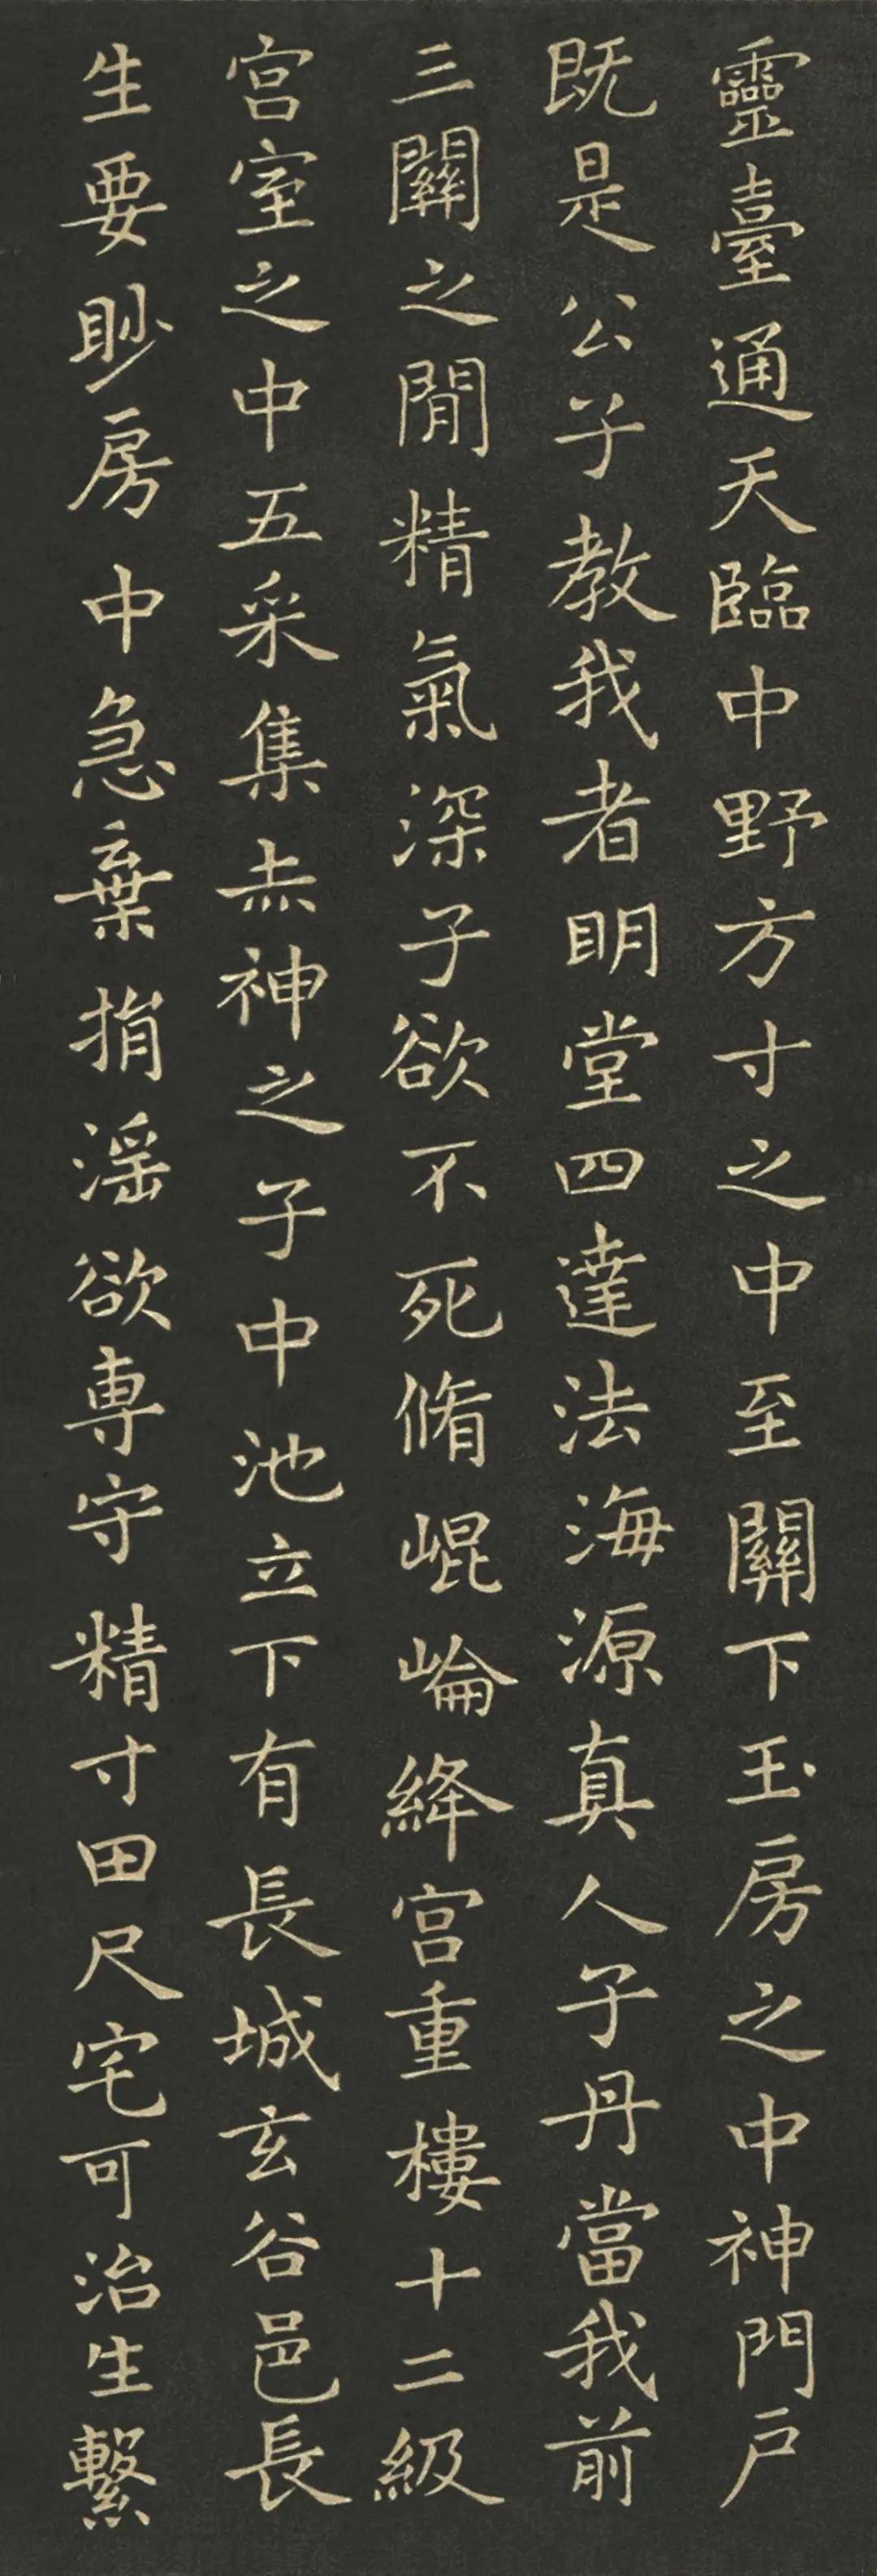 靈臺通天臨中野方寸之中至關下玉房之中神門戶
既是公子教我者明堂四達法海源真人子丹當我前
三關之閒精氣深子欲不死脩崐崘絳宮重樓十二級
宮室之中五采集赤神之子中池立下有長城玄谷邑長
生要眇房中急棄捐滛欲専守精寸田尺宅可治生繫